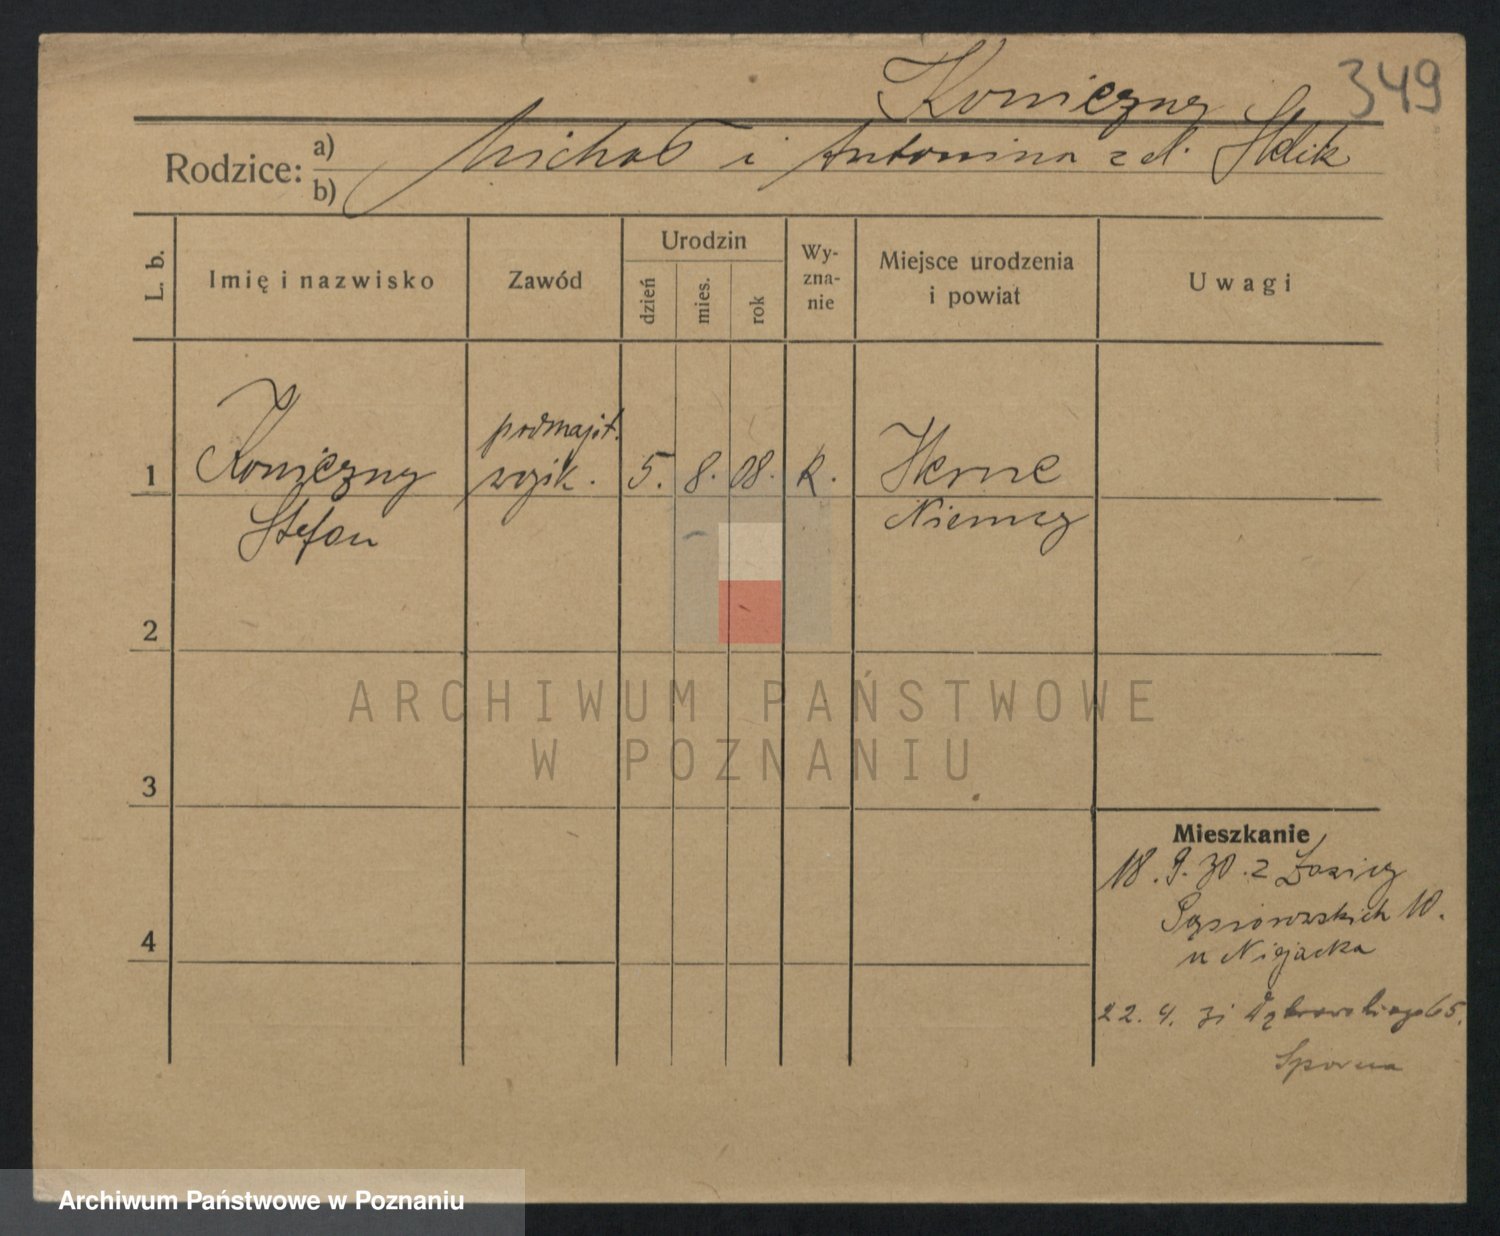 Koniczny 349
Rodzice: a) Michał i Antonina z d.
b)
L. b. Imię i nazwisko Zawód Urodzin dzień mies. rok Wy-zna-nie Miejsce urodzenia i powiat Uwagi
podmajst.
1 Koniczny 5. 8. 08. k. Herne
Stefan Niemcy
2
ARCHIWUM PAŃSTWOWE
W POZNANIU
3
Mieszkanie
18. 9. 30. z
10.
4
u
22. 4. 31 Dąbrowskiego 65.
Sporna
Archiwum Państwowe w Poznaniu